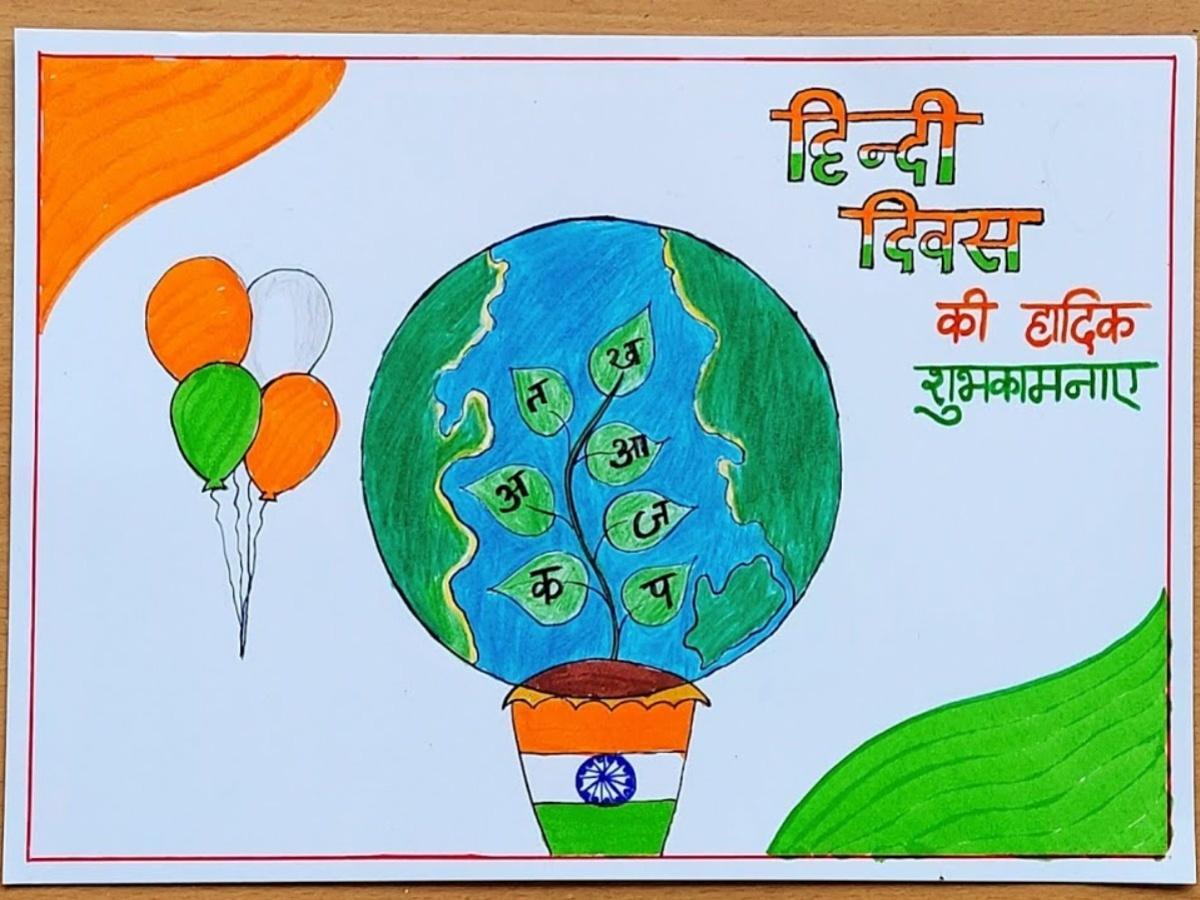 हिन्दी
दिवस
की हादिक
शुभकामनाए
ख
त
आ
अ
ज
क
प